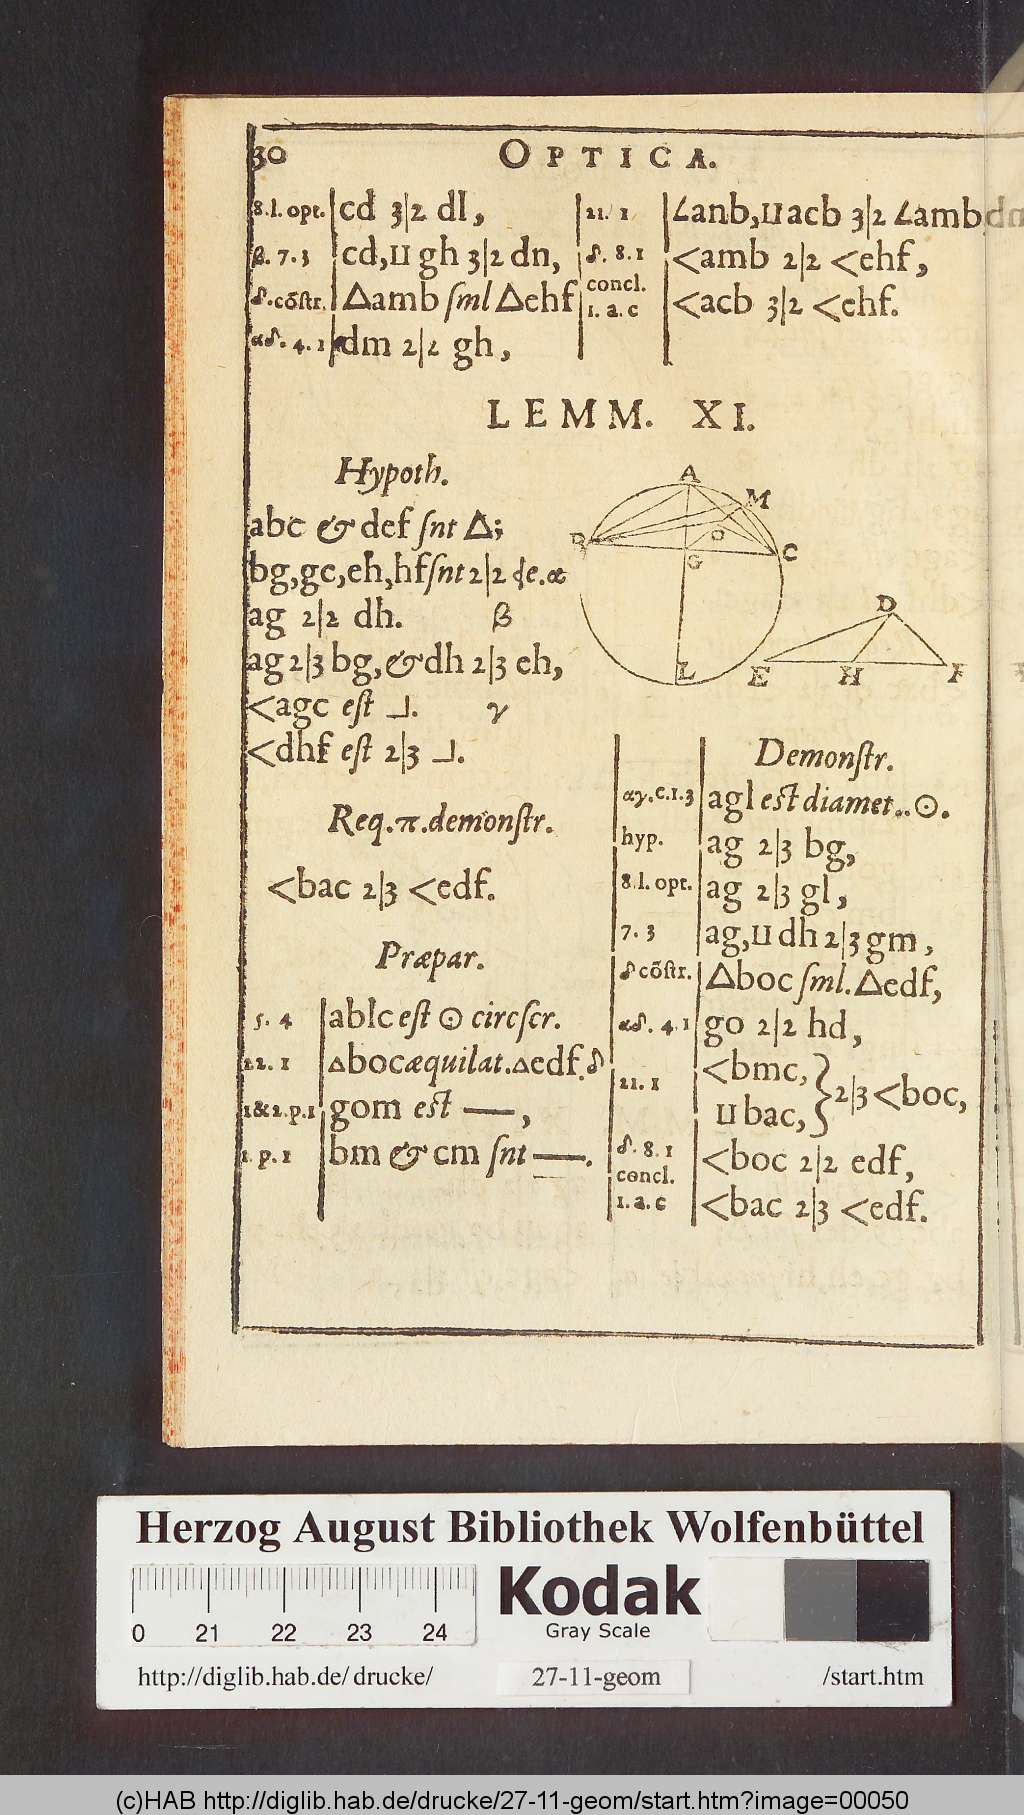 30
OPTICA.
8.l.opt. cd 3|2 dl,
β. 7. 3 cd, ⊔ gh 3|2 dn,
δ.cōſtr. ∆amb ſml ∆ehf
αδ. 4. 1 dm 2|2 gh,
21. 1 <anb, ⊔ acb 3|2 <amb
δ. 8. 1 <amb 2|2 <ehf,
concl.
1. a. c <acb 3|2 <ehf.
LEMM. XI.
Hypoth.
abc & def ſnt ∆;
bg,gc,eh,hf ſnt 2|2 ɖe.α
ag 2|2 dh. β
ag 2|3 bg, & dh 2|3 eh,
<agc eſt ⅃. γ
<dhf eſt 2|3 ⅃.
A
M
B
O
C
G
D
L
E
H
F
Req.π.demonſtr.
<bac 2|3 <edf.
Præpar.
5. 4 ablc eſt ⊙ circſcr.
22. 1 ∆boc æquilat. ∆edf. δ
1&2.p.1 gom eſt —,
1. p. 1 bm & cm ſnt —.
Demonſtr.
αγ.c.1.3 agl eſt diamet.. ⊙.
hyp. ag 2|3 bg,
8.l.opt. ag 2|3 gl,
7. 3 ag, ⊔ dh 2|3 gm,
δ cōſtr. ∆boc ſml. ∆edf,
αδ. 4. 1 go 2|2 hd,
21. 1 <bmc, } 2|3 <boc,
⊔ bac,
δ. 8. 1 <boc 2|2 edf,
concl.
1. a. c <bac 2|3 <edf.
Herzog August Bibliothek Wolfenbüttel
0 21 22 23 24
Kodak
Gray Scale
http://diglib.hab.de/drucke/ 27-11-geom /start.htm
(c)HAB http://diglib.hab.de/drucke/27-11-geom/start.htm?image=00050